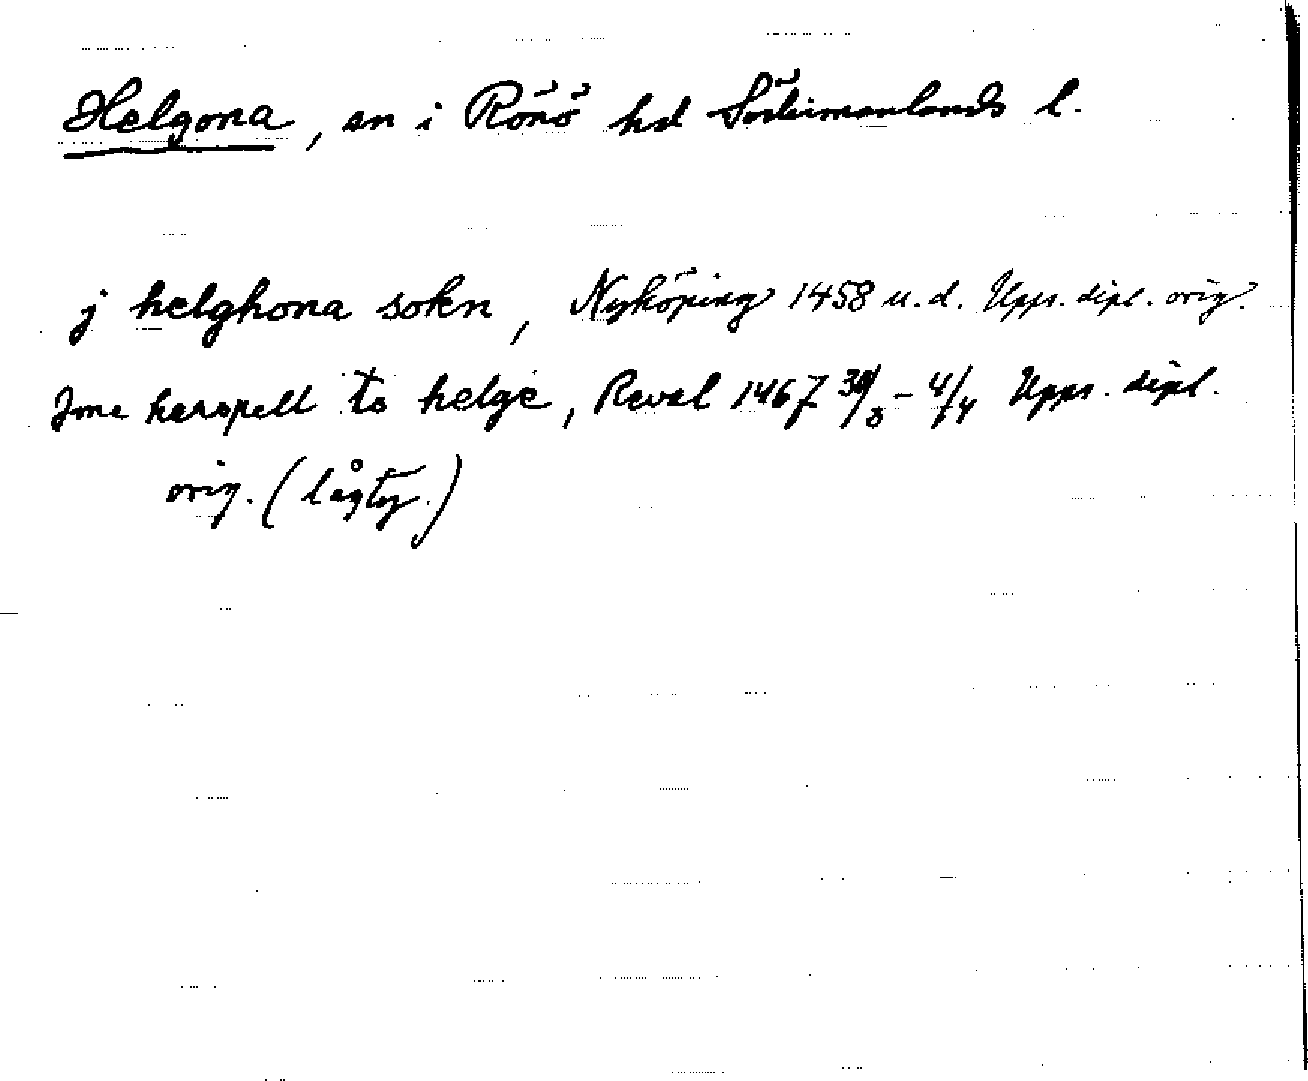 Helgona, sn i Rönö hd Södermanlands l.
j helghona sokn, Nyköping 1458 u.d. Upps. dipl. orig.
Jme kerspell to helge, Reval 1467 30/3 – 4/4 Upps. dipl.
orig. (lågty.)